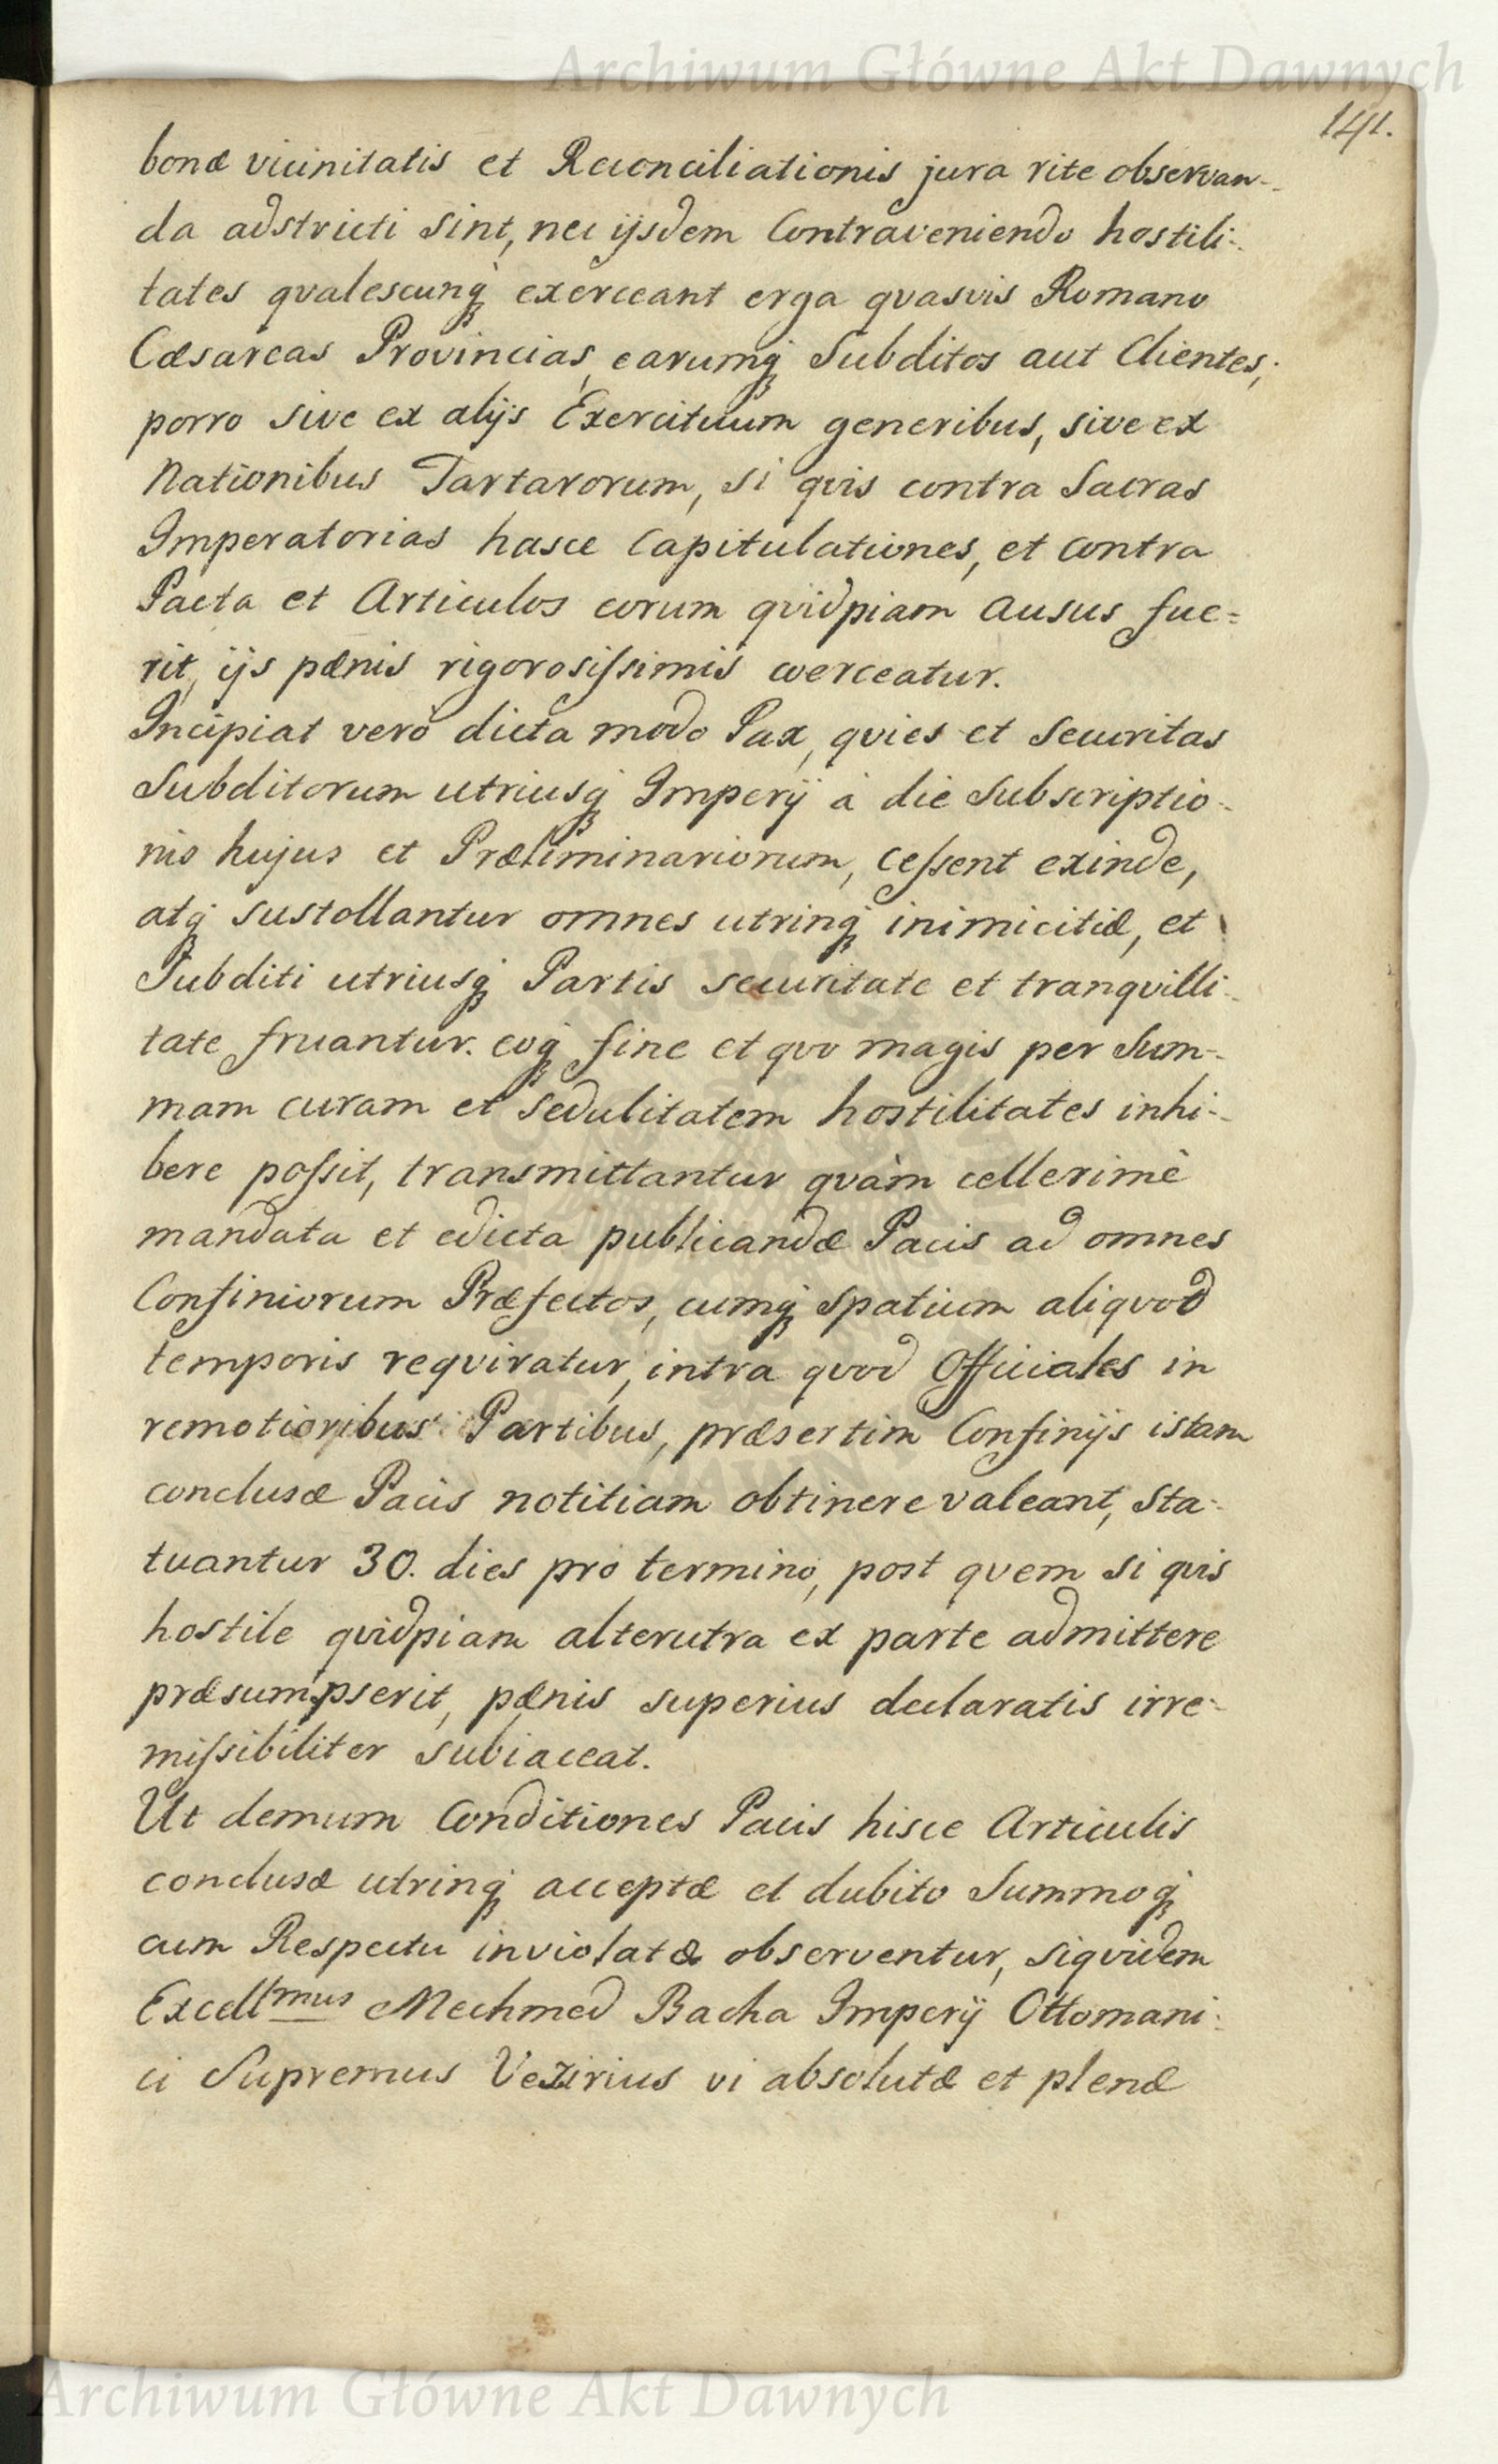 Archiwum Główne Akt Dawnych
141.
bonæ vicinitatis et Reconciliationis jura rite observan-
da adstricti sint, nec ijsdem Contraveniendo hostili-
tates qvalescunq́ exerceant erga qvasvis Romano
Cæsareas Provincias, earumq́ Subditos aut Clientes;
porro sive ex alijs Exercituum generibus, sive ex
Nationibus Tartarorum, si qvis contra Sacras
Imperatorias hasce Capitulationes, et contra
Pacta et Articulos eorum qvidpiam ausus fue=
rit, ijs pænis rigorosiſsimis coerceatur.
Incipiat verò dicta modo Pax, qvies et Securitas
Subditorum utriusq́ Imperij à die Subscriptio-
nis hujus et Præliminariorum, ceſsent exinde,
atq́ sustollantur omnes utrinq́ inimicitiæ, et
Subditi utriusq́ Partis securitate et tranqvilli-
tate fruantur. eoq́ fine et qvo magis per Sum-
mam curam et Sedulitatem hostilitates inhi-
bere poſsit, transmittantur qvàm cellerimè
mandata et edicta publicandæ Pacis ad omnes
Confiniorum Præfectos, cumq́ Spatium aliqvod
temporis reqviratur, intra qvod Officiales in
remotioribus Partibus, præsertim Confinijs istam
conclusæ Pacis notitiam obtinere valeant, Sta-
tuantur 30. dies pro termino, post qvem si qvis
hostile qvidpiam alterutra ex parte admittere
præsumpserit, pænis superius declaratis irre-
miſsibiliter subiaceat.
Ut demum Conditiones Pacis hisce Articulis
conclusæ utrinq́ acceptæ et dubito Summoq́
cum Respectu inviolatæ observentur, siqvidem
Excellmus Mechmed Bacha Imperij Ottomani-
ci Supremus Vezirius vi absolutæ et plenæ
Archiwum Główne Akt Dawnych